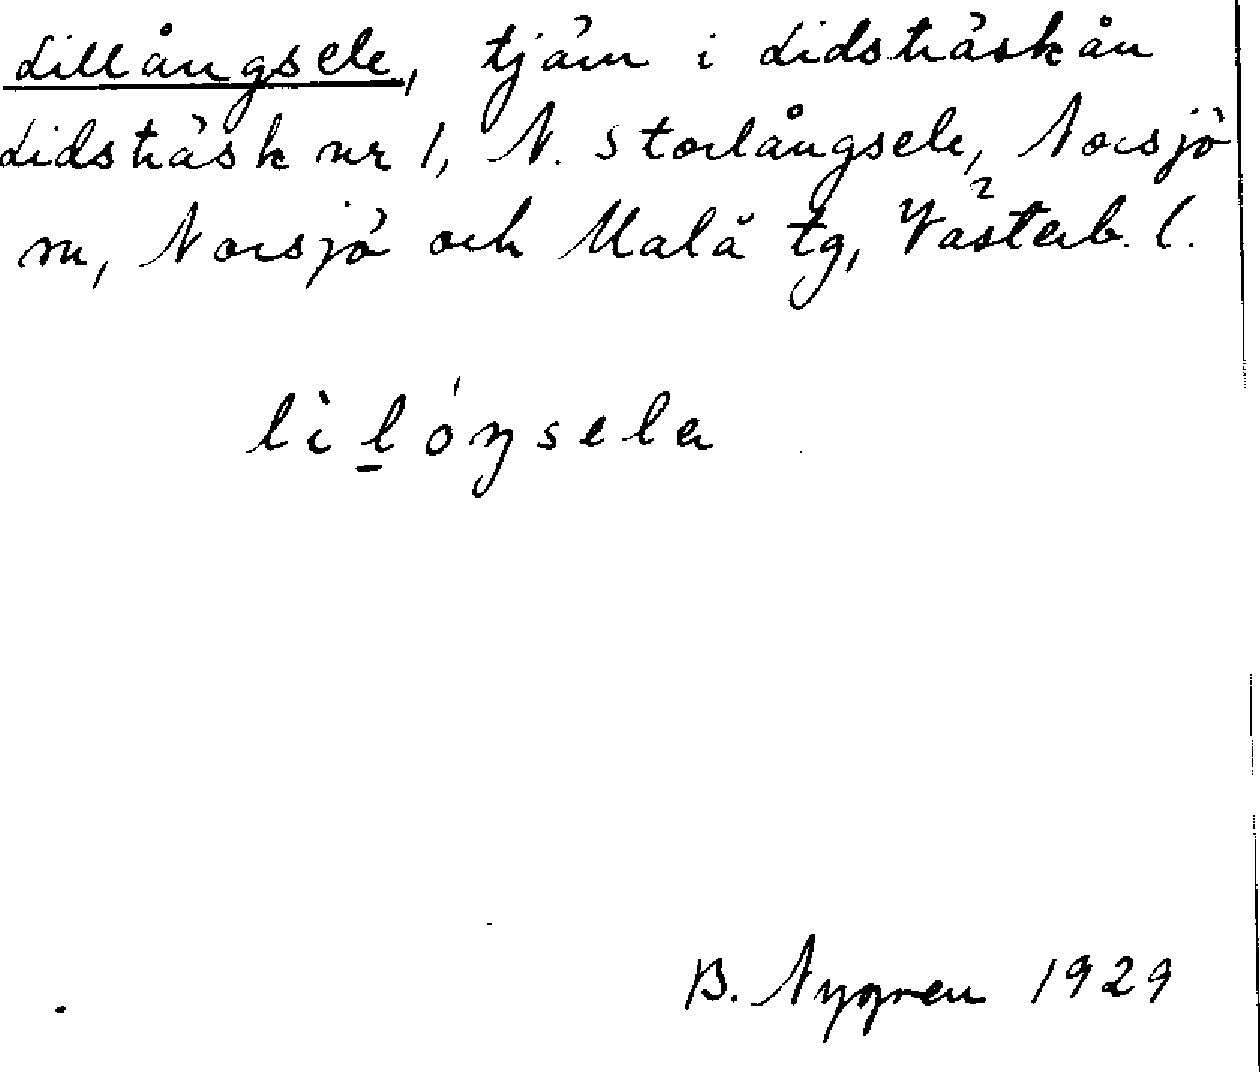 Lillångsele, tjärn i Lidsträskån
Lidsträsk nr 1, N. Storlångsele, Norsjö
sn, Norsjö och Malå tg, Västerb. l.
lìl̠óŋsela
B. Nygren 1929